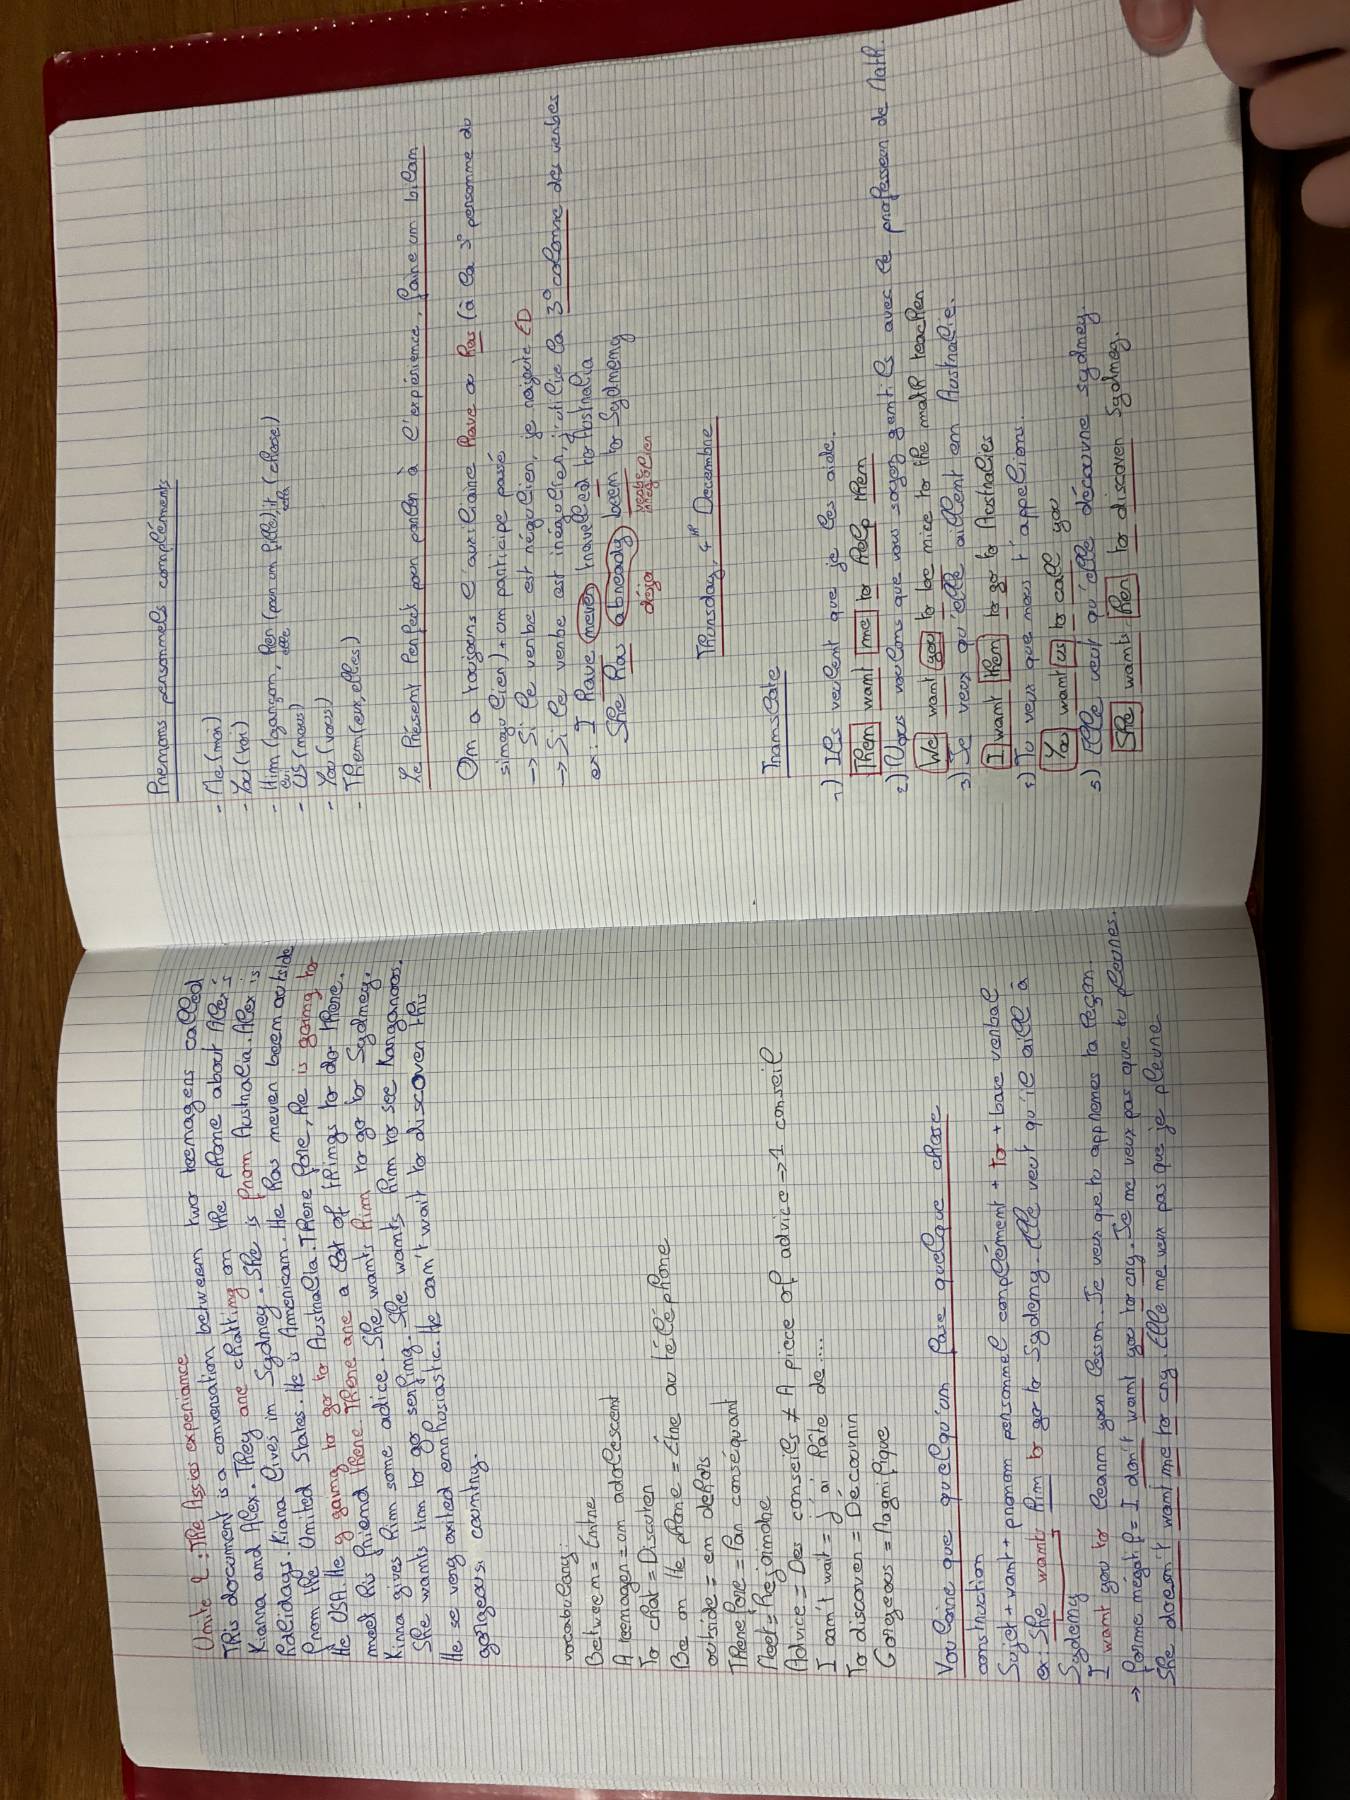 Unite 2 : The Assos experiance
This document is a conversation between two teenagers called
Kianna and Alex. They are chatting on the phone about Alex's
holidays. Kiana lives in Sydney. She is from Australia. Alex is
from the United States. He is American. He has never been outside
the USA. He y going to go to Australia. There fore, he is going to
meet his friend there. There are a lot of things to do there.
Kinna gives him some adice. She wants him to go to Sydney.
She wants him to go serfing. She wants him to see Kangaroos.
He se very exited enthosiastic. He can't wait to discover this
gorgeous country.
vocabulary:
Between = Entre
A teenager = un adolescent
To chat = Discuter
Be on the phone = être au téléphone
outside = en dehors
There fore = Par conséquant
Meet = Rejoindre
Advice = Des conseils ≠ A piece of advice → 1 conseil
I can't wait = j'ai hâte de....
To discover = Découvrir
Gorgeous = Magnifique
Vouloire que quelqu'un fase quelque chose
construction
Sujet + want + pronom personnel complément + to + base verbal
ex: She wants him to go to Sydeny. Elle veut qu'il aille à
Sydeny
I want you to learn your lesson. Je veux que tu apprenes ta leçon.
→ forme négatif = I don't want you to cry. Je me veux pas que tu pleures.
She doesn't want me to cry. Elle me veux pas que je pleure
Pronoms personnels compléments
- Me (moi)
- You (toi)
- Him (garçon, her (par un fille) it (chose)
lui elle
- US (nous)
- You (vous)
- Them (eux, elles)
Le Présent Perfect pour parler à l'expérience, faire un bilan
On a toujours l'auxiliaire have a has (à la 3e personne du
singulier) + un participe passé
→ Si le verbe est régulier, je rajoute ED
→ Si le verbe est inégulier, j'utilise la 3e colonne des verbes
ex: I have never travelled to Australia
She has already been to Sydmeny
déja
Thursday, 4th Decembre
Translate
1) Ils veulent que je les aide.
Them want me to help them
2) Nous voulons que vous soyez gentils avec le professeur de Math.
We want you to be nice to the math teacher
3) Je veux qu'elle aillent en Australie.
I want them to go to Australies
4) Tu veux que nous t'appelions.
You want us to call you
5) Elle veut qu'elle découvre sydney.
She wants her to discover Sydney.